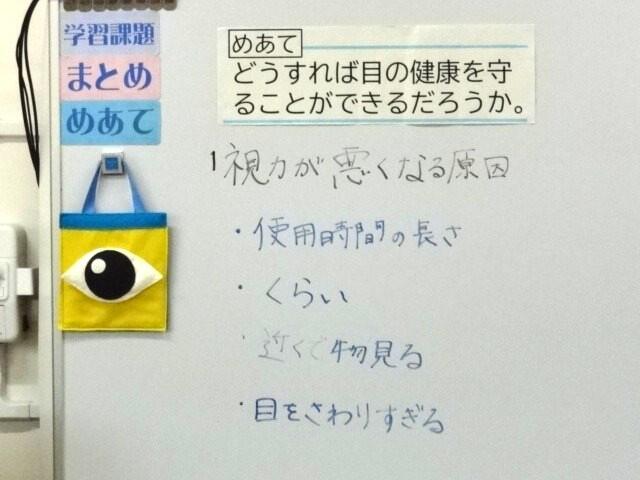 学習課題
まとめ
めあて
めあて
どうすれば目の健康を守
ることができるだろうか。
1 視力が悪くなる原因
・使用時間の長さ
・くらい
・近くで物見る
・目をさわりすぎる